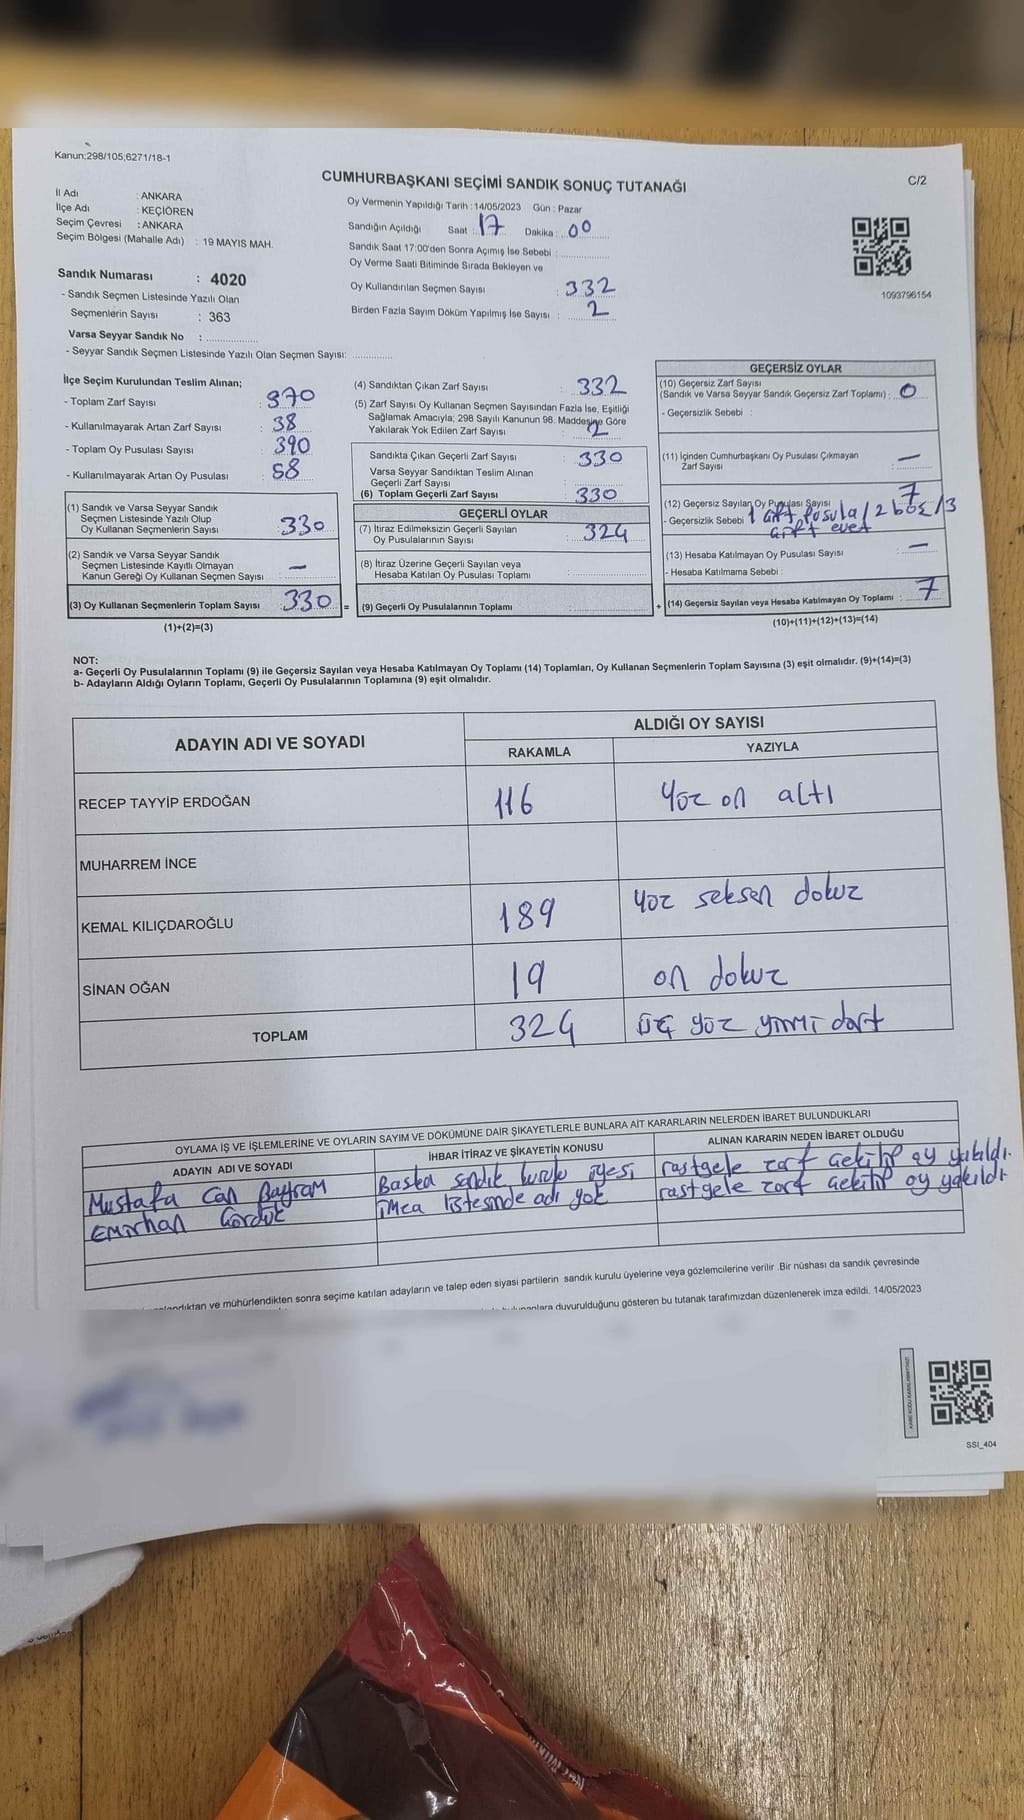 Kanun;298/105;6271/18-1
C/2
CUMHURBAŞKANI SEÇİMİ SANDIK SONUÇ TUTANAĞI
İl Adı : ANKARA
İlçe Adı : KEÇİÖREN
Seçim Çevresi : ANKARA
Seçim Bölgesi (Mahalle Adı) : 19 MAYIS MAH.
Oy Vermenin Yapıldığı Tarih : 14/05/2023 Gün : Pazar
Sandığın Açıldığı Saat : 17 Dakika : 00
Sandık Saat 17:00'den Sonra Açımış İse Sebebi :
Oy Verme Saati Bitiminde Sırada Bekleyen ve
Oy Kullandırılan Seçmen Sayısı : 332
Birden Fazla Sayım Döküm Yapılmış İse Sayısı : 2
1093796154
Sandık Numarası : 4020
- Sandık Seçmen Listesinde Yazılı Olan
Seçmenlerin Sayısı : 363
Varsa Seyyar Sandık No :
- Seyyar Sandık Seçmen Listesinde Yazılı Olan Seçmen Sayısı:
İlçe Seçim Kurulundan Teslim Alınan;
- Toplam Zarf Sayısı : 370
- Kullanılmayarak Artan Zarf Sayısı : 38
- Toplam Oy Pusulası Sayısı : 390
- Kullanılmayarak Artan Oy Pusulası : 58
(1) Sandık ve Varsa Seyyar Sandık
Seçmen Listesinde Yazılı Olup
Oy Kullanan Seçmenlerin Sayısı : 330
(2) Sandık ve Varsa Seyyar Sandık
Seçmen Listesinde Kayıtlı Olmayan
Kanun Gereği Oy Kullanan Seçmen Sayısı : -
(3) Oy Kullanan Seçmenlerin Toplam Sayısı : 330 =
(1)+(2)=(3)
(4) Sandıktan Çıkan Zarf Sayısı : 332
(5) Zarf Sayısı Oy Kullanan Seçmen Sayısından Fazla İse, Eşitliği
Sağlamak Amacıyla; 298 Sayılı Kanunun 98. Maddesine Göre
Yakılarak Yok Edilen Zarf Sayısı : 2
Sandıkta Çıkan Geçerli Zarf Sayısı : 330
Varsa Seyyar Sandıktan Teslim Alınan
Geçerli Zarf Sayısı
(6) Toplam Geçerli Zarf Sayısı : 330
GEÇERLİ OYLAR
(7) İtiraz Edilmeksizin Geçerli Sayılan
Oy Pusulalarının Sayısı : 324
(8) İtiraz Üzerine Geçerli Sayılan veya
Hesaba Katılan Oy Pusulası Toplamı :
(9) Geçerli Oy Pusulalarının Toplamı : +
GEÇERSİZ OYLAR
(10) Geçersiz Zarf Sayısı
(Sandık ve Varsa Seyyar Sandık Geçersiz Zarf Toplamı) : 0
- Geçersizlik Sebebi :
(11) İçinden Cumhurbaşkanı Oy Pusulası Çıkmayan
Zarf Sayısı : -
(12) Geçersiz Sayılan Oy Pusulası Sayısı : 7
- Geçersizlik Sebebi 1 çift pusula / 2 boş / 3
çift evet
(13) Hesaba Katılmayan Oy Pusulası Sayısı : -
- Hesaba Katılmama Sebebi :
(14) Geçersiz Sayılan veya Hesaba Katılmayan Oy Toplamı : 7
(10)+(11)+(12)+(13)=(14)
NOT:
a- Geçerli Oy Pusulalarının Toplamı (9) ile Geçersiz Sayılan veya Hesaba Katılmayan Oy Toplamı (14) Toplamları, Oy Kullanan Seçmenlerin Toplam Sayısına (3) eşit olmalıdır. (9)+(14)=(3)
b- Adayların Aldığı Oyların Toplamı, Geçerli Oy Pusulalarının Toplamına (9) eşit olmalıdır.
ADAYIN ADI VE SOYADI
ALDIĞI OY SAYISI
RAKAMLA YAZIYLA
RECEP TAYYİP ERDOĞAN 116 yüz on altı
MUHARREM İNCE
KEMAL KILIÇDAROĞLU 189 yüz seksen dokuz
SİNAN OĞAN 19 on dokuz
TOPLAM 324 üç yüz yirmi dört
OYLAMA İŞ VE İŞLEMLERİNE VE OYLARIN SAYIM VE DÖKÜMÜNE DAİR ŞİKAYETLERLE BUNLARA AİT KARARLARIN NELERDEN İBARET BULUNDUKLARI
ADAYIN ADI VE SOYADI İHBAR İTİRAZ VE ŞİKAYETİN KONUSU ALINAN KARARIN NEDEN İBARET OLDUĞU
Mustafa Can Bayram Başka sandık kurulu üyesi rastgele zarf çekilip oy yakıldı.
Emirhan Gördük imza listesinde adı yok rastgele zarf çekilip oy yakıldı
sonra seçime katılan adayların ve talep eden siyasi partilerin sandık kurulu üyelerine veya gözlemcilerine verilir .Bir nüshası da sandık çevresinde
duyurulduğunu gösteren bu tutanak tarafımızdan düzenlenerek imza edildi. 14/05/2023
SSI_404